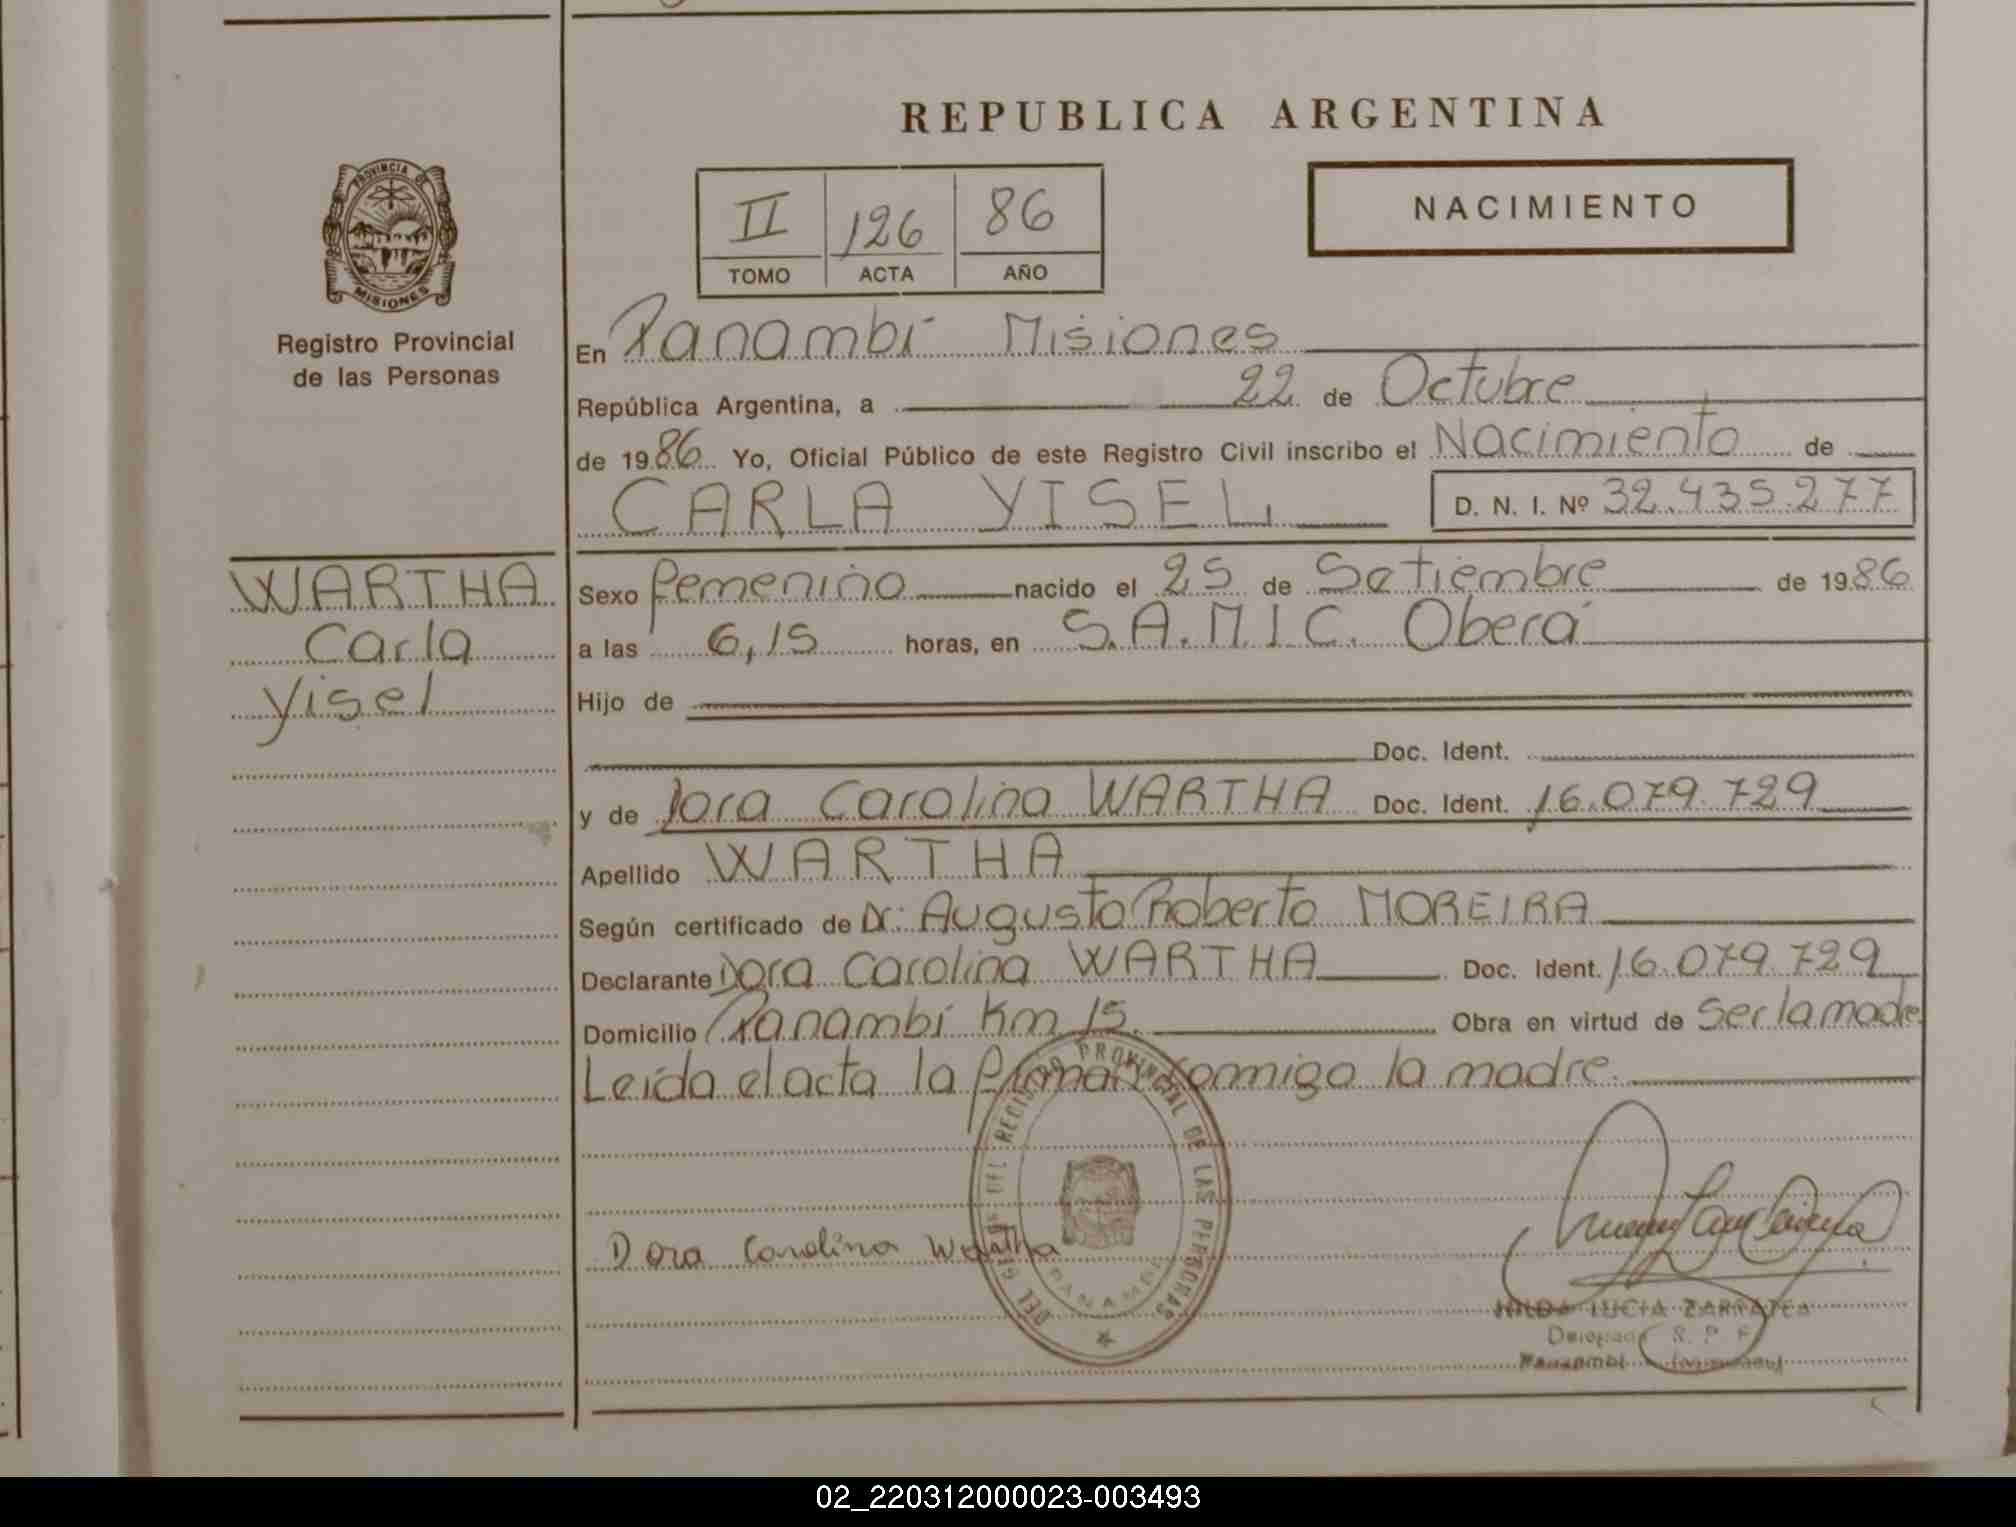 REPUBLICA ARGENTINA
PROVINCIA DE
MISIONES
Registro Provincial
de las Personas
II 126 86
TOMO ACTA AÑO
NACIMIENTO
En Panambí Misiones
República Argentina, a 22 de Octubre
de 1986 Yo, Oficial Público de este Registro Civil inscribo el Nacimiento de
CARLA YISEL D. N. I. Nº 32.435.277
WARTHA
Carla
Yisel
Sexo femenino nacido el 25 de Setiembre de 1986
a las 6,15 horas, en S.A.M.I.C. Oberá
Hijo de
Doc. Ident.
y de Dora Carolina WARTHA Doc. Ident. 16.079.729
Apellido WARTHA
Según certificado de Dr: Augusto Roberto MOREIRA
Declarante Dora Carolina WARTHA Doc. Ident. 16.079.729
Domicilio Panambí Km 15. Obra en virtud de Ser la madre
Leída el acta la firma conmigo la madre.
DEL REGISTRO PROVINCIAL DE LAS PERSONAS
PANAMBI
Dora Carolina Wartha
HILDA LUCIA
Delegada R. P. P.
Panambí (Misiones)
02_220312000023-003493